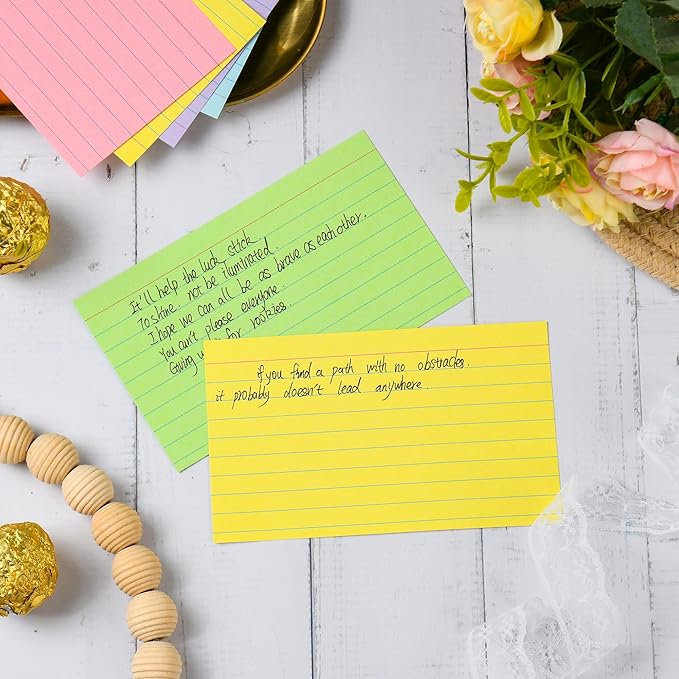 It'll help the luck stick
To shine, not be illuminated.
I hope we can all be as brave as each other.
You can't please everyone.
Giving up is for rookies.
if you find a path with no obstracles.
it probably doesn't lead anywhere.